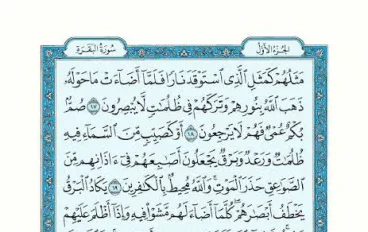 الجزء الأول سورة البقرة
مَثَلُهُمْ كَمَثَلِ الَّذِي اسْتَوْقَدَ نَارًا فَلَمَّا أَضَاءَتْ مَا حَوْلَهُ
ذَهَبَ اللَّهُ بِنُورِهِمْ وَتَرَكَهُمْ فِي ظُلُمَاتٍ لَّا يُبْصِرُونَ ١٧ صُمٌّ
بُكْمٌ عُمْيٌ فَهُمْ لَا يَرْجِعُونَ ١٨ أَوْ كَصَيِّبٍ مِّنَ السَّمَاءِ فِيهِ
ظُلُمَاتٌ وَرَعْدٌ وَبَرْقٌ يَجْعَلُونَ أَصَابِعَهُمْ فِي آذَانِهِم مِّنَ
الصَّوَاعِقِ حَذَرَ الْمَوْتِ وَاللَّهُ مُحِيطٌ بِالْكَافِرِينَ ١٩ يَكَادُ الْبَرْقُ
يَخْطَفُ أَبْصَارَهُمْ كُلَّمَا أَضَاءَ لَهُم مَّشَوْا فِيهِ وَإِذَا أَظْلَمَ عَلَيْهِمْ